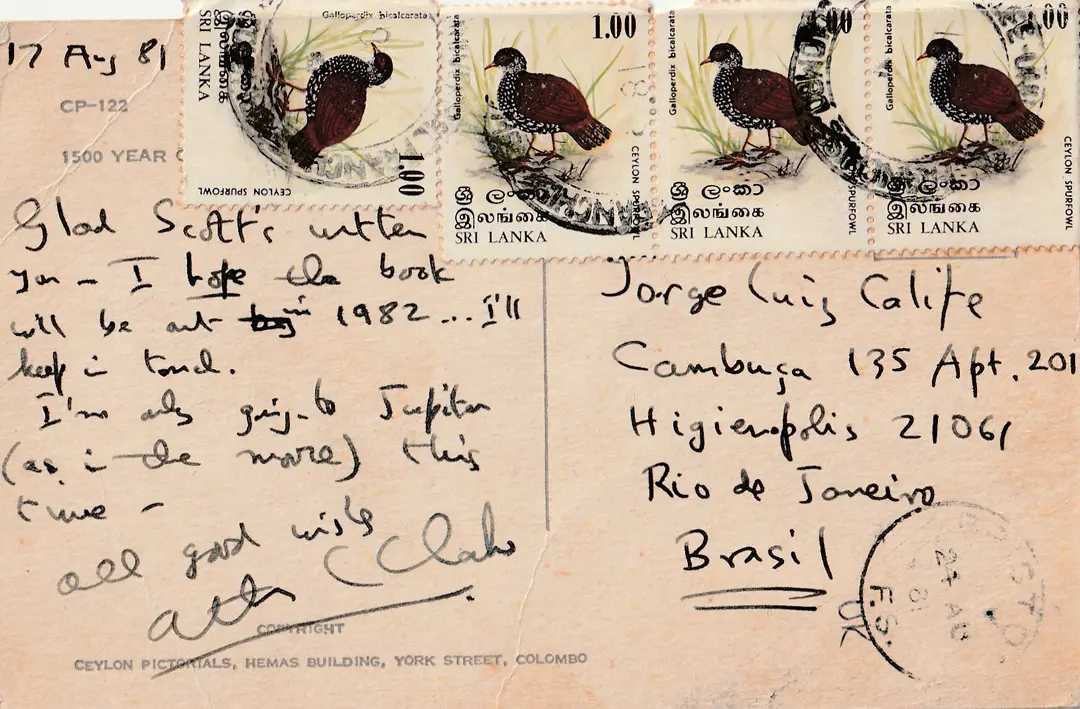 17 Aug 81
CP-122
1500 YEAR
Galloperdix bicalcarata
ශ්‍රී ලංකා
இலங்கை
SRI LANKA
1.00
CEYLON SPURFOWL
Galloperdix bicalcarata
1.00
CEYLON SPURFOWL
ශ්‍රී ලංකා
இலங்கை
SRI LANKA
Galloperdix bicalcarata
1.00
CEYLON SPURFOWL
ශ්‍රී ලංකා
இலங்கை
SRI LANKA
Galloperdix bicalcarata
1.00
CEYLON SPURFOWL
ශ්‍රී ලංකා
இலங்கை
SRI LANKA
Glad Scott's written
you – I hope the book
will be out in 1982...I'll
keep in touch.
I'm only going to Jupiter
(as in the movie) this
time –
all good wishes
Arthur C Clarke
COPYRIGHT
CEYLON PICTORIALS, HEMAS BUILDING, YORK STREET, COLOMBO
Jorge Luiz Calife
Cambuça 135 Apt. 201
Higienopolis 21061
Rio de Janeiro
Brasil
24 AG
81
F.S.